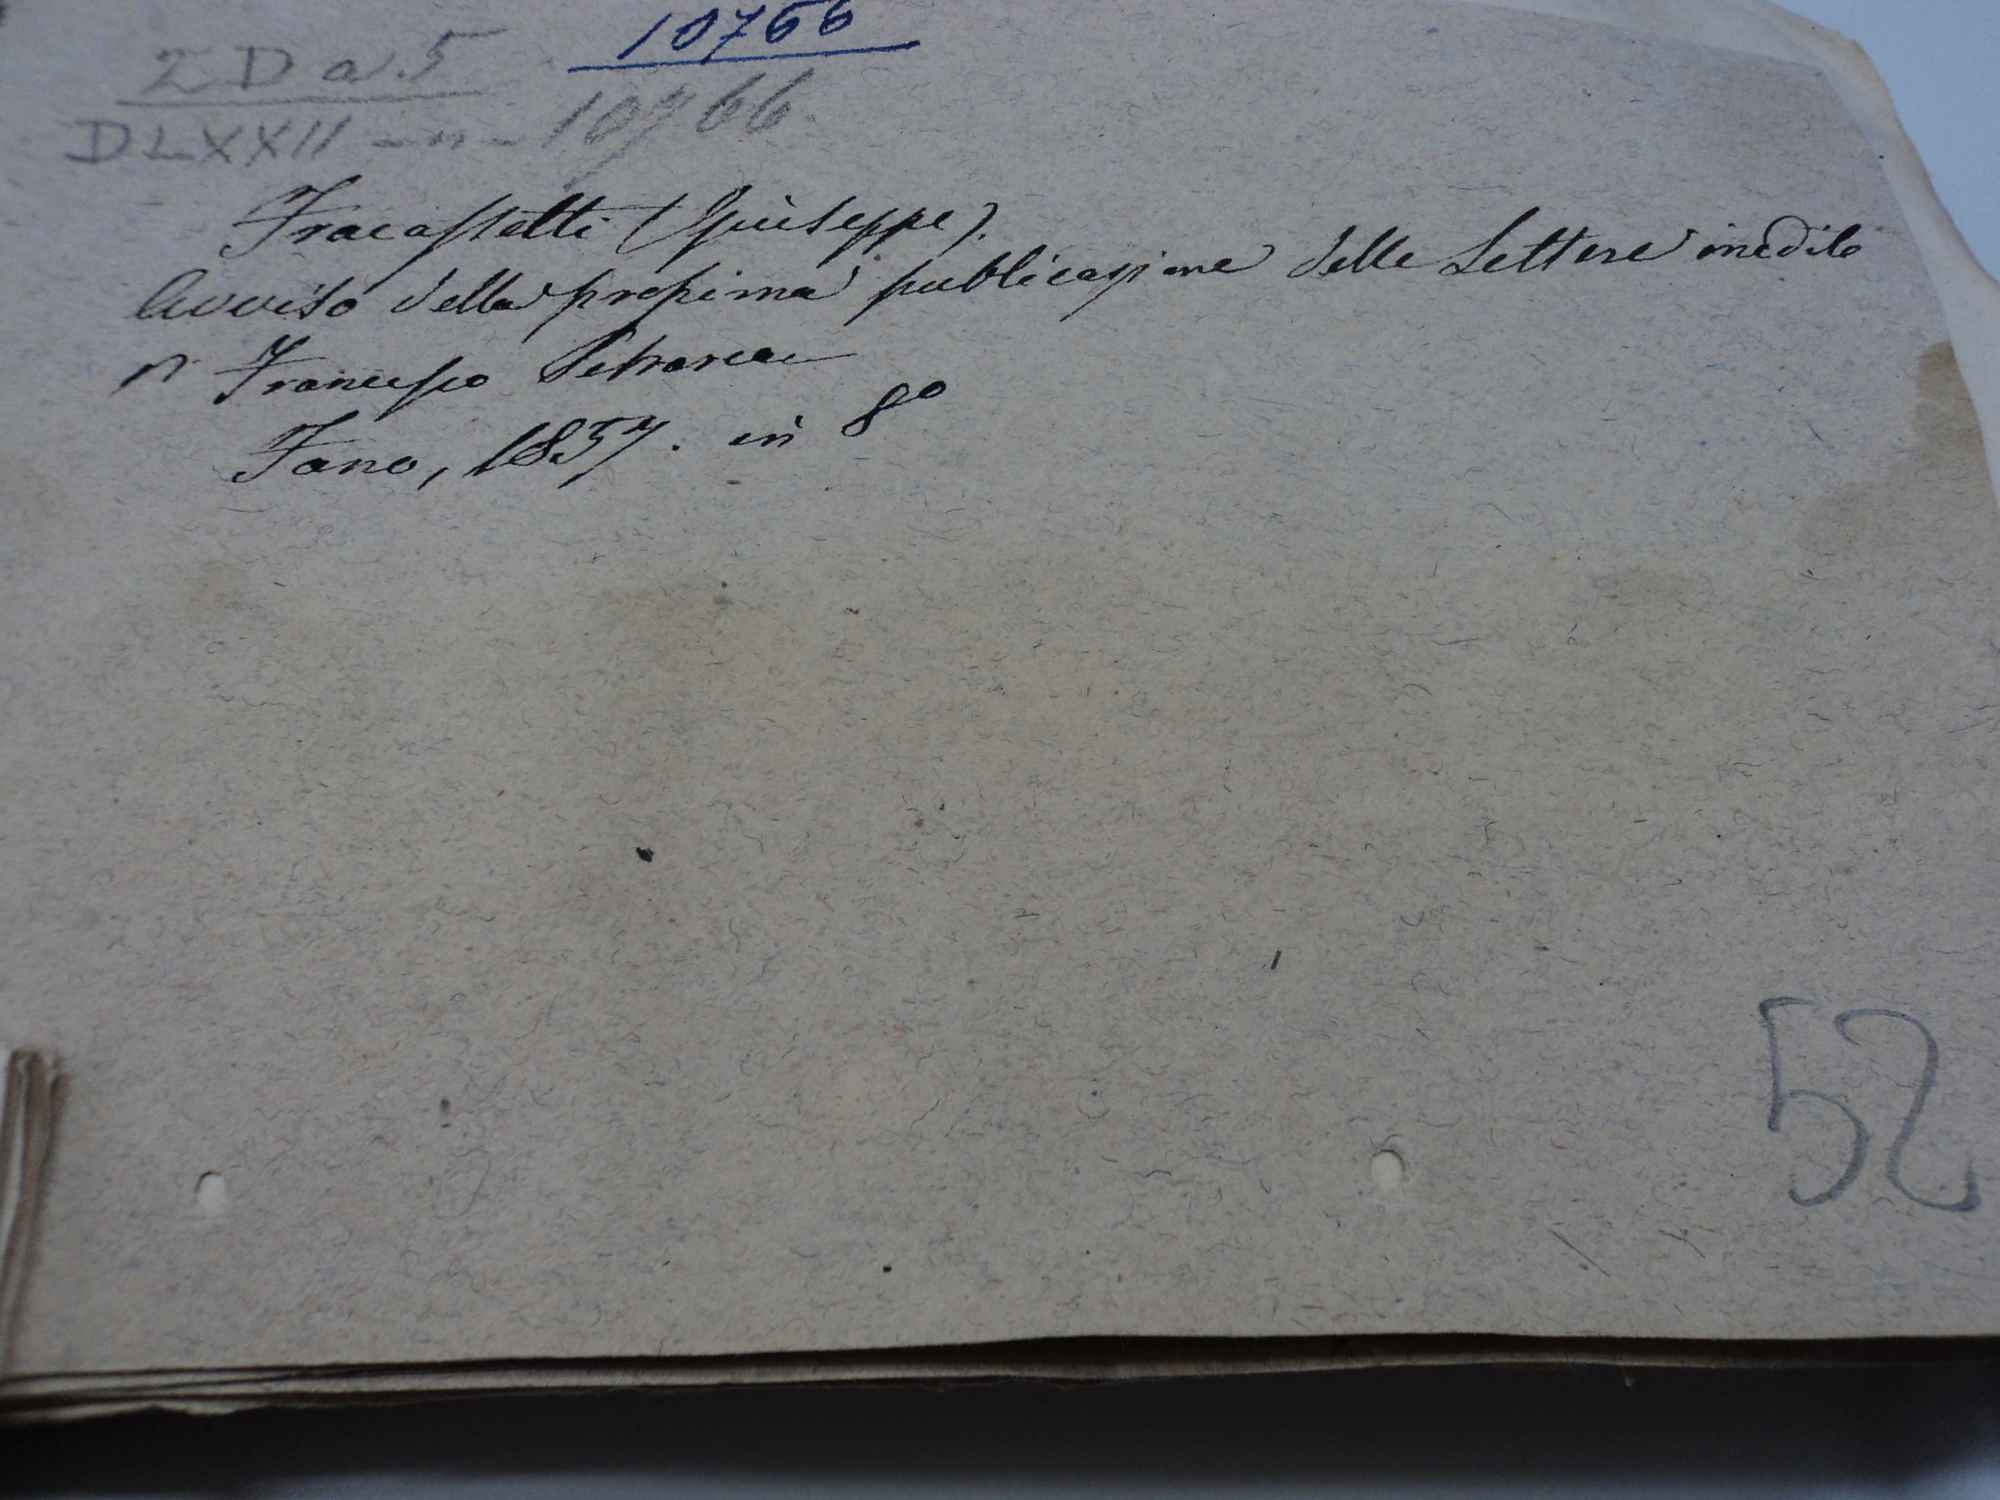 10766
2 D a. 5
DLXXII - n - 10766.
Fracassetti (Giuseppe).
Avviso della prossima publicazione delle Lettere inedite
Francesco Petrarca
Fano, 1857. in 8º
52